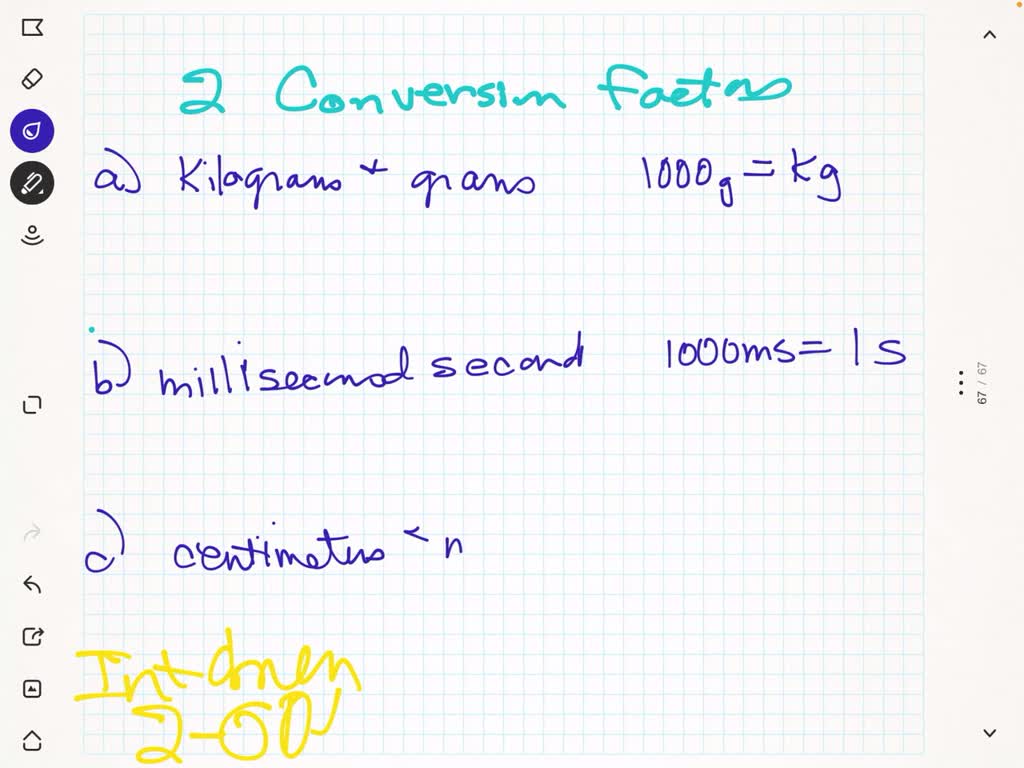 2 Conversion factors
a) Kilograms + grams 1000g = Kg
b) millisecond second 1000ms = 1 s
67 / 67
c) centimeters
2-